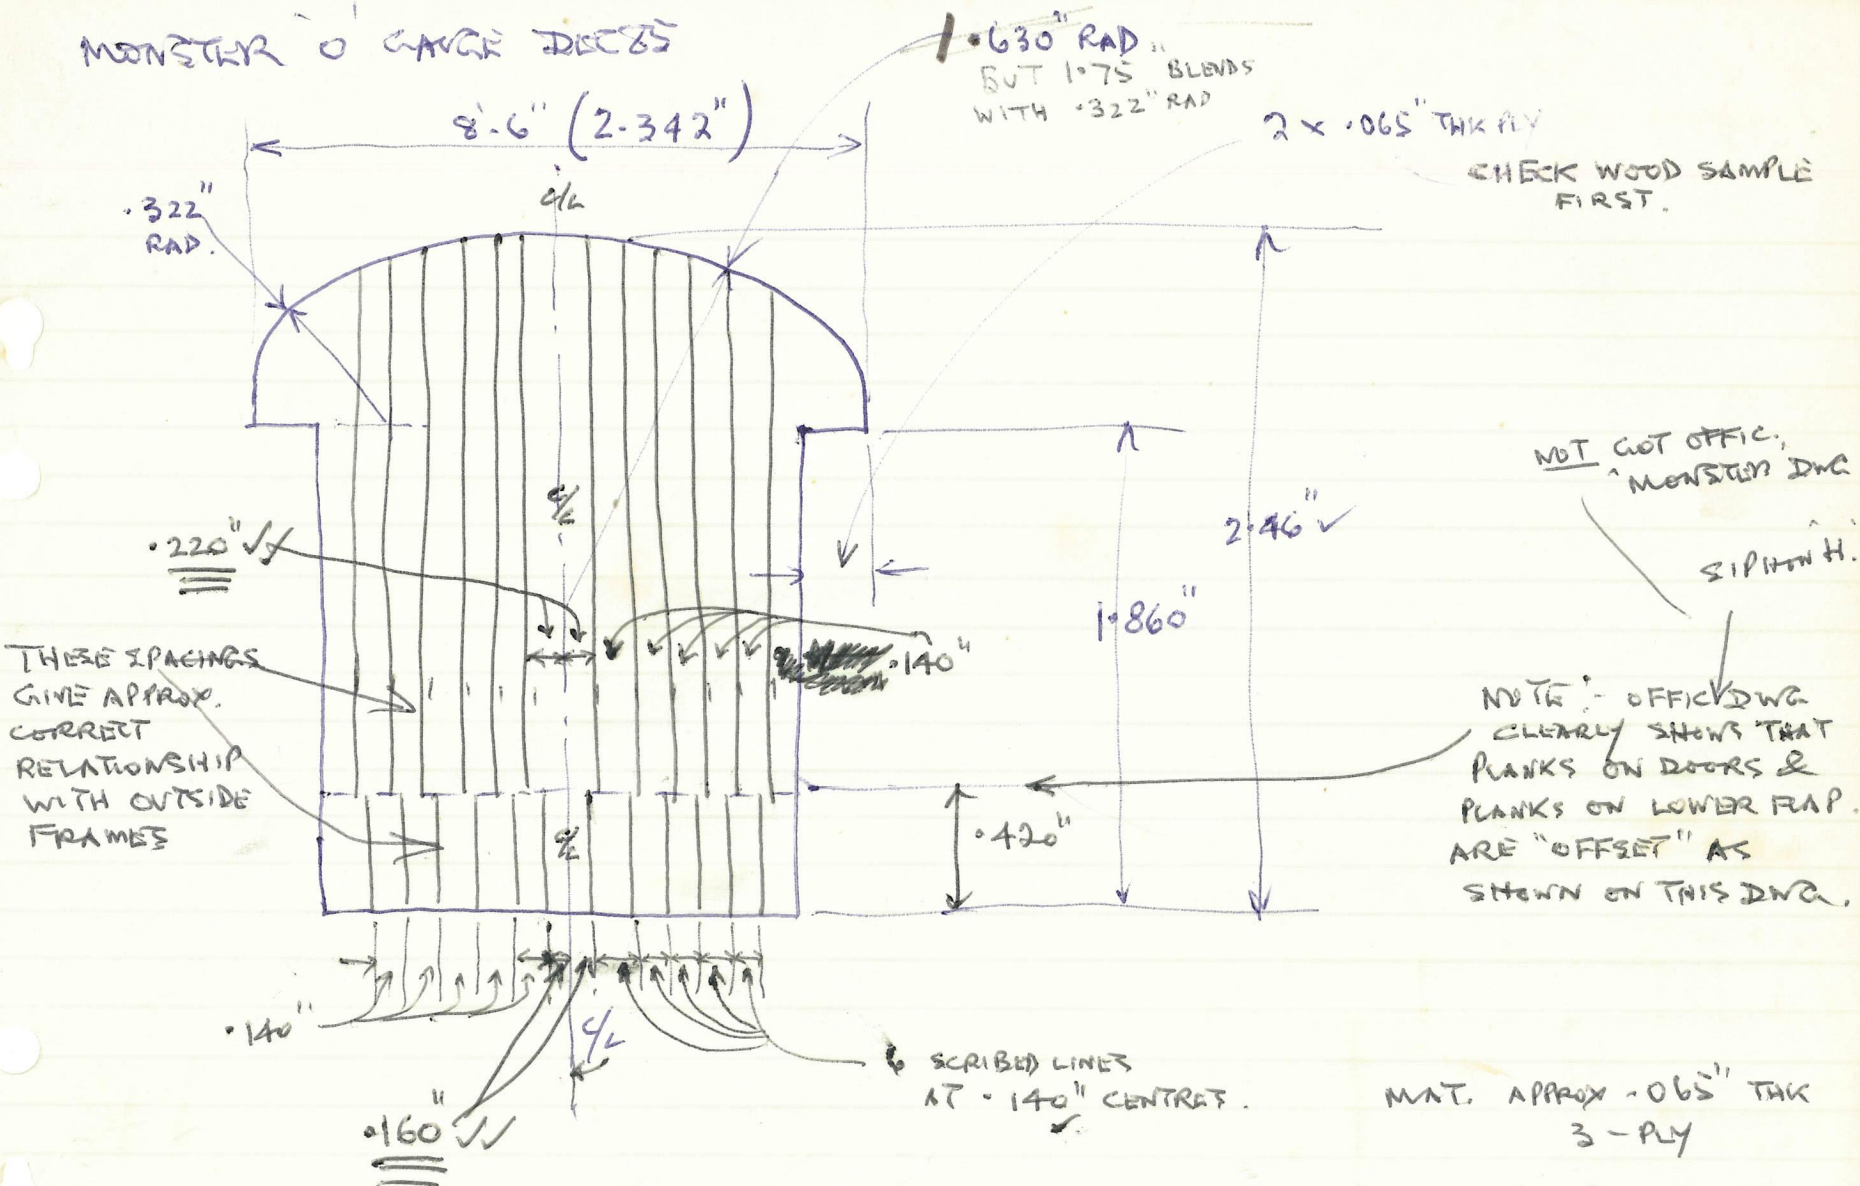 MONSTER 'O' GAUGE DEC 85
1.630" RAD
BUT 1.75" BLENDS
WITH .322" RAD
8'-6" (2.342")
2 x .065" THK PLY
CHECK WOOD SAMPLE
FIRST.
C/L
.322"
RAD.
NOT GOT OFFIC.
"MONSTER" DWG
SIPHON H.
C/L
2.46" ✓
.220" ✓✓
1.860"
.140"
THESE SPACINGS
GIVE APPROX.
CORRECT
RELATIONSHIP
WITH OUTSIDE
FRAMES
NOTE:- OFFIC DWG
CLEARLY SHOWS THAT
PLANKS ON DOORS &
PLANKS ON LOWER FLAP.
ARE "OFFSET" AS
SHOWN ON THIS DWG.
.420"
C/L
.140"
C/L
6 SCRIBED LINES
AT .140" CENTRES.
✓
.160" ✓✓
MAT. APPROX .065" THK
3-PLY